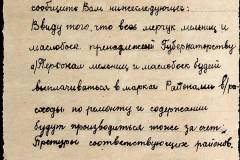 сообщило Вам нижеследующее:
Ввиду того, что весь мерчук мельниц и
маслобоек принадлежит Губернаторству
а/Персонал мельниц и маслобоек будет
выплачиваться в марках Районами в/рас-
ходы по ремонту и содержании
будут производиться тоже за счет
Претуры соответствующих районов.